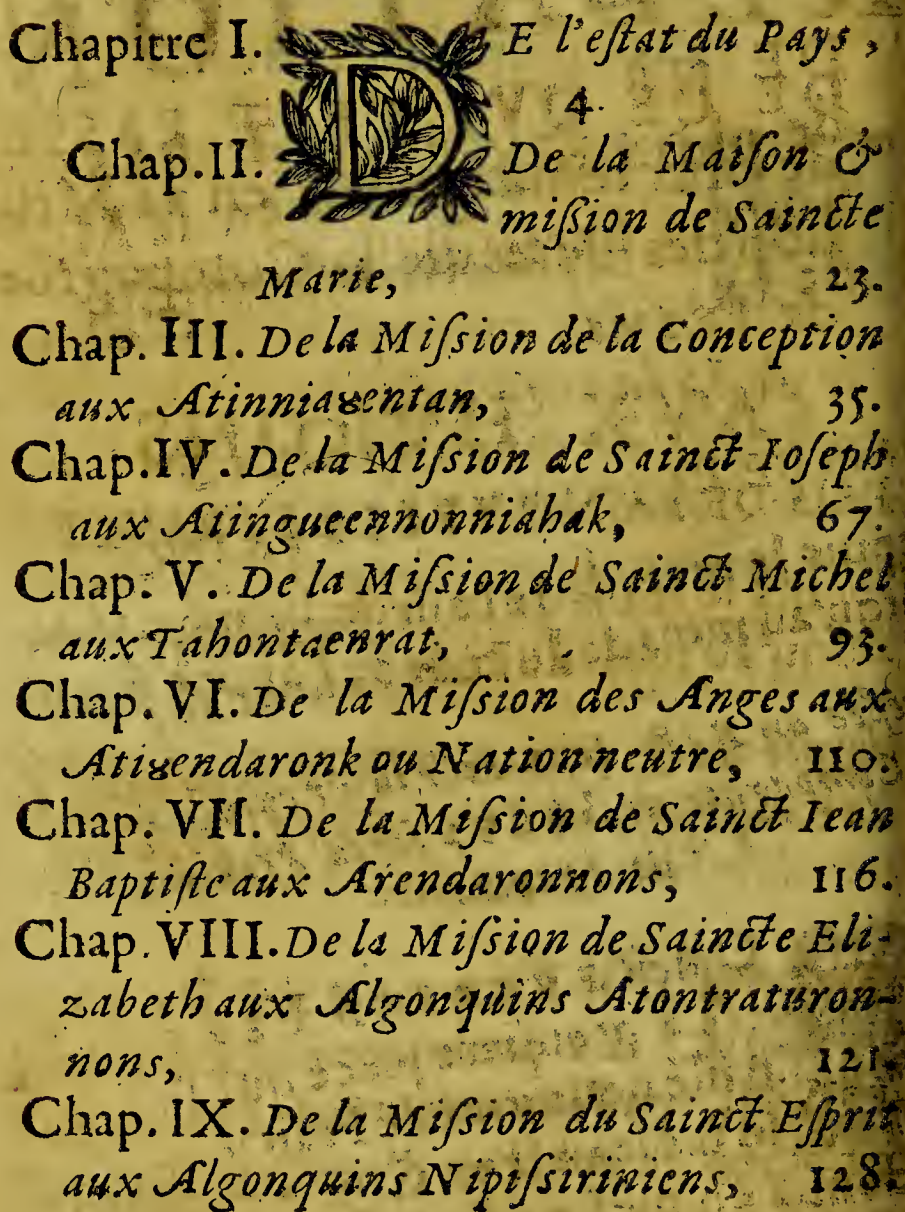 Chapitre I. DE l'eſtat du Pays,
4.
Chap. II. De la Maiſon &
miſsion de Saincte
Marie, 23.
Chap. III. De la Miſsion de la Conception
aux Atinnia8entan, 35.
Chap. IV. De la Miſsion de Sainct Ioſeph
aux Atingueennonniahak, 67.
Chap. V. De la Miſsion de Sainct Michel
aux Tahontaenrat, 93.
Chap. VI. De la Miſsion des Anges aux
Ati8endaronk ou Nation neutre, 110.
Chap. VII. De la Miſsion de Sainct Iean
Baptiſte aux Arendaronnons, 116.
Chap. VIII. De la Miſsion de Saincte Eli-
zabeth aux Algonquins Atontraturon-
nons, 121.
Chap. IX. De la Miſsion du Sainct Eſprit
aux Algonquins Nipiſsiriniens, 128.